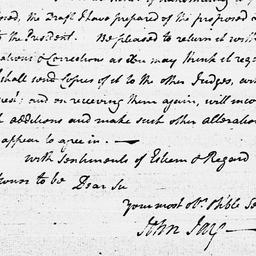 osed, the Draft I have prepared of the proposed
to the President. Be pleased to return it with
ations & Corrections as you may think it req
shall send Copies of it to the other Judges, with
rest; and on receiving them again, will inco
additions and make such other alteration
appear to agree in. —
with Sentiments of Esteem & Regard
Honor to be Dear Sir
your most obt. & hble Se
John Jay —